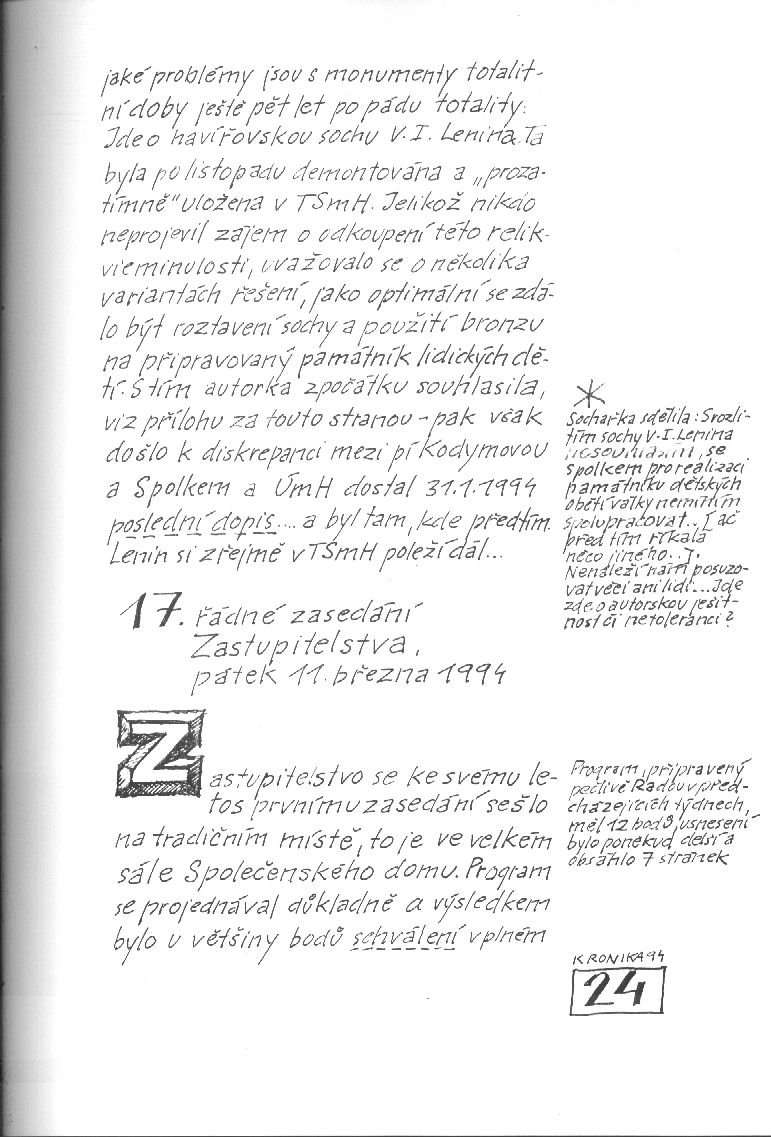 jaké problémy jsou s monumenty totalit-
ní doby ještě pět let po pádu totality.
Jde o havířovskou sochu V. I. Lenina. Ta
byla po listopadu demontována a „proza-
tímně" uložena v TSmH. Jelikož nikdo
neprojevil zájem o odkoupení této relik-
vie minulosti, uvažovalo se o několika
variantách řešení, jako optimální se zdá-
lo být roztavení sochy a použití bronzu
na připravovaný památník lidických dě-
tí. S tím autorka zpočátku souhlasila,
viz přílohu za touto stranou - pak však
došlo k diskrepanci mezi pí Kodymovou
a Spolkem a ÚmH dostal 31.1.1994
poslední dopis.... a byl tam, kde předtím.
Lenin si zřejmě v TSmH poleží dál...
*
Sochařka sdělila: S rozli-
tím sochy V. I. Lenina
nesouhlasím, se
spolkem pro realizaci
památníku dětských
obětí války nemíním
spolupracovat.. [ač
před tím říkala
něco jiného..].
Nenáleží nám posuzo-
vat věci ani lidi... Jde
zde o autorskou ješit-
nost či netoleranci?
17. řádné zasedání
Zastupitelstva,
pátek 11. března 1994
Zastupitelstvo se ke svému le-
tos prvnímu zasedání sešlo
na tradičním místě, to je ve velkém
sále Společenského domu. Program
se projednával důkladně a výsledkem
bylo u většiny bodů schválení v plném
Program, připravený
pečlivě Radou v před-
cházejících týdnech,
měl 12 bodů, usnesení
bylo poněkud delší a
obsáhlo 7 stránek
KRONIKA 94
24